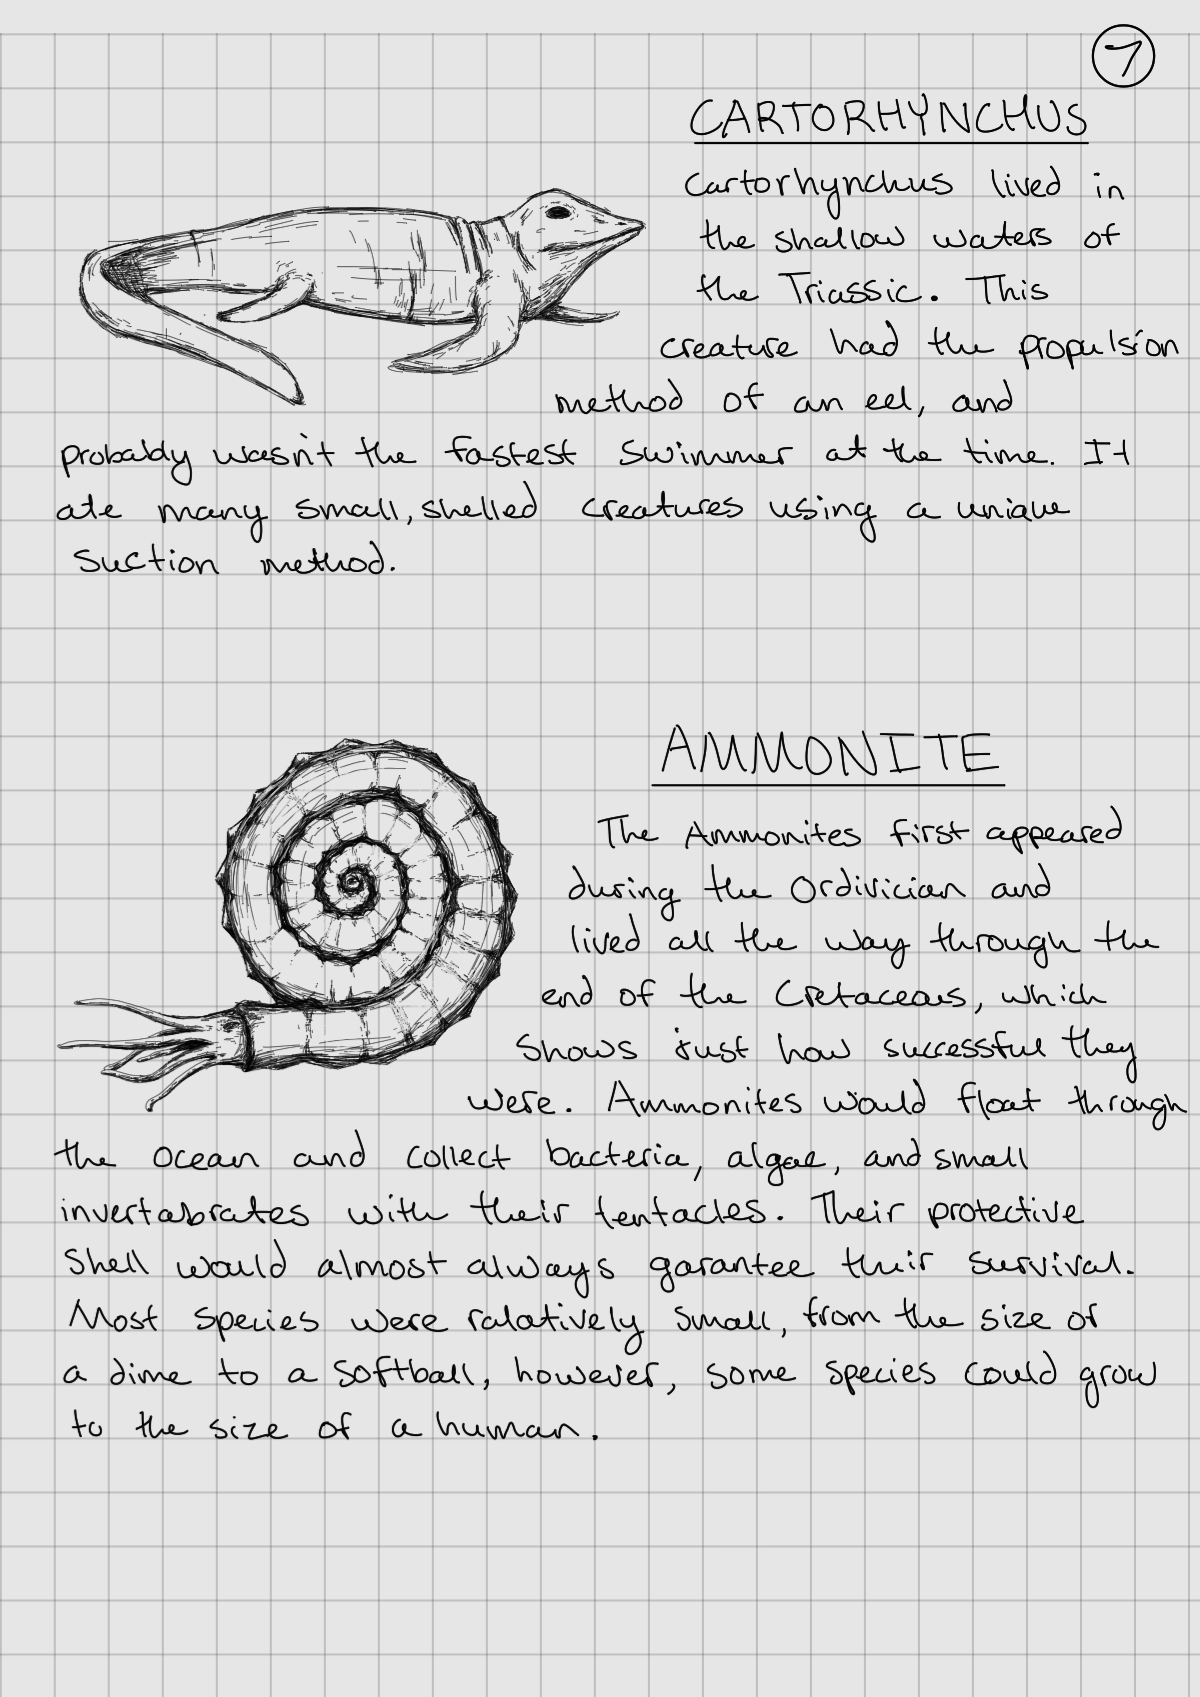 7
CARTORHYNCHUS
Cartorhynchus lived in
the shallow waters of
the Triassic. This
creature had the propulsion
method of an eel, and
probably wasn't the fastest swimmer at the time. It
ate many small, shelled creatures using a unique
suction method.
AMMONITE
The Ammonites first appeared
during the Ordivician and
lived all the way through the
end of the Cretaceous, which
shows just how successful they
were. Ammonites would float through
the ocean and collect bacteria, algae, and small
invertabrates with their tentacles. Their protective
shell would almost always garantee their survival.
Most species were ralatively small, from the size of
a dime to a softball, however, some species could grow
to the size of a human.